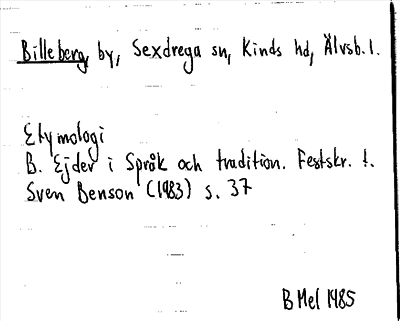 Billeberg by, Sexdrega sn, Kinds hd, Älvsb. l.
Etymologi
B. Ejder i Språk och tradition. Festskr. t.
Sven Benson (1983) s. 37
B Mel 1985